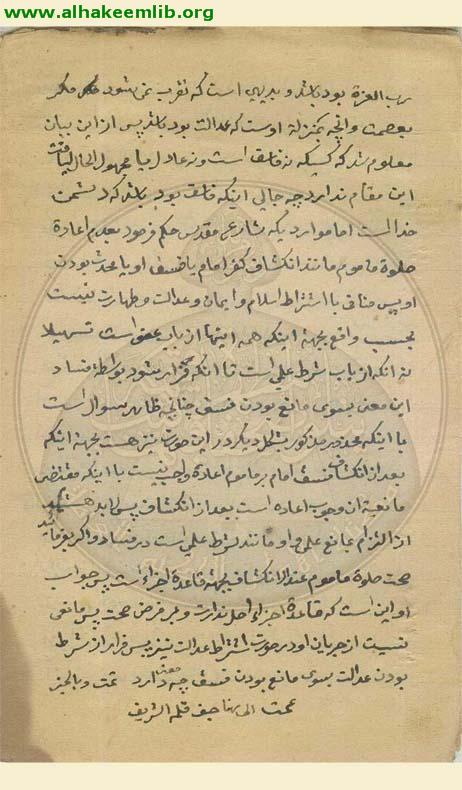 www.alhakeemlib.org
رب العزة بوده باشد و بدیهی است که تقرب نمی شود مگر
بعصمت و انچه بمنزله اوست که عدالت بوده باشد پس از این بیان
معلوم شد که کسیکه نه فاسق است و نه عادل یا مجهول الحال لیاقت
این مقام ندارد چه جای اینکه فاسق بوده باشد که دشمن
خداست اما مواردیکه شارع مقدس حکم فرموده بعدم اعادة
صلوة ماموم مانند انکشاف کفر امام یا فسق او یا محدث بودن
او پس منافی با اشتراط اسلام و ایمان و عدالت و طهارت نیست
بحسب واقع بجهة اینکه همه اینها از باب عفو است تسهیلا
نه انکه از باب شرط علمی است تا انکه فرار شود بواسطة فساد
این معنی بسوی مانع بودن فسق چنانچه ظاهر سوال است
با اینکه محذور مذکور بشکل دیگر در این صورت نیز هست بجهة اینکه
بعد از انکشاف فسق امام بر ماموم اعادة واجب نیست با اینکه مقتضی
مانعیة ان وجوب اعاده است بعد از انکشاف پس لابد هستید
از التزام بمانع علمی و او مانند شرط علمی است در فساد و اگر بفرمائید
صحت صلوة ماموم عند الانکشاف بجهة قاعدة اجزاء است پس جواب
او این است که قاعدة اجزاء اصل ندارد و بر فرض صحت پس مانعی
نیست از جریان او در صورت اشتراط عدالت نیز پس فرار از شرط
بودن عدالت بسوی مانع بودن فسق چه معنی دارد تمت و بالخیر
عمت الی هنا جف قلمه الشریف